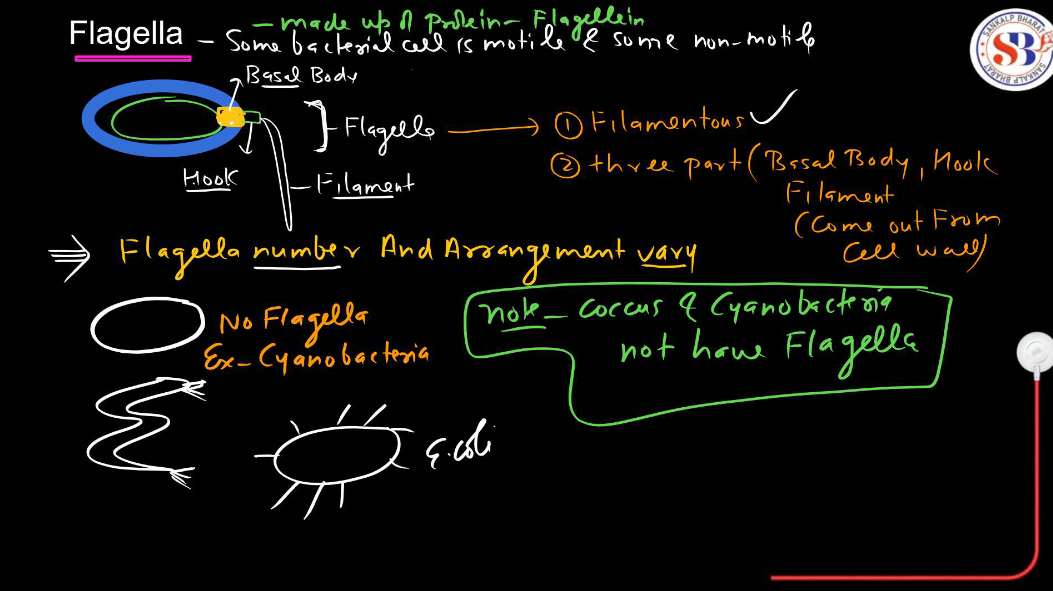 — made up of protein - Flagellein
Flagella — Some bacterial cell is motile & some non-motile
Basal Body
Flagella → ① Filamentous ✓
② three part (Basal Body, Hook
Hook
Filament
Filament
(Come out From
Cell wall)
⇒ Flagella number And Arrangement vary
No Flagella
Ex - Cyanobacteria
note - coccus & Cyanobacteria
not have Flagella
E.coli
SANKALP BHARAT
SB
SANKALP BHARAT